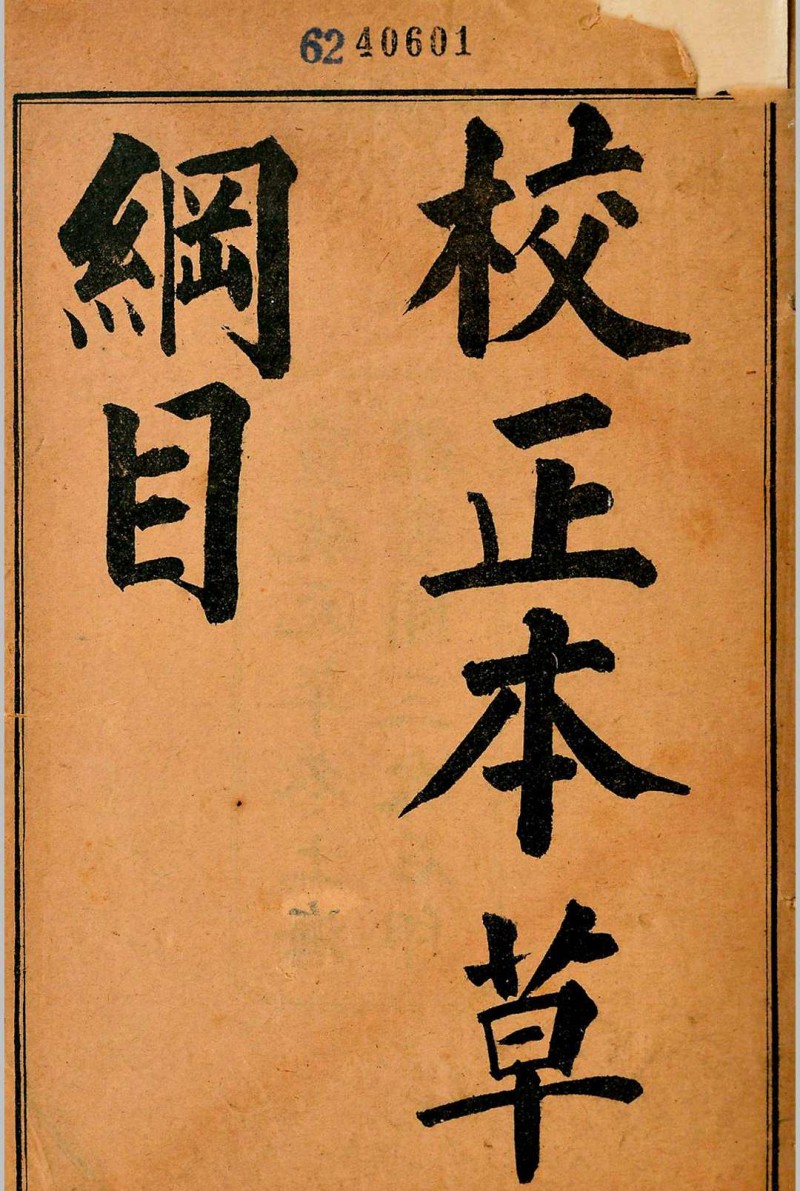 62 40601
校正本草
綱目